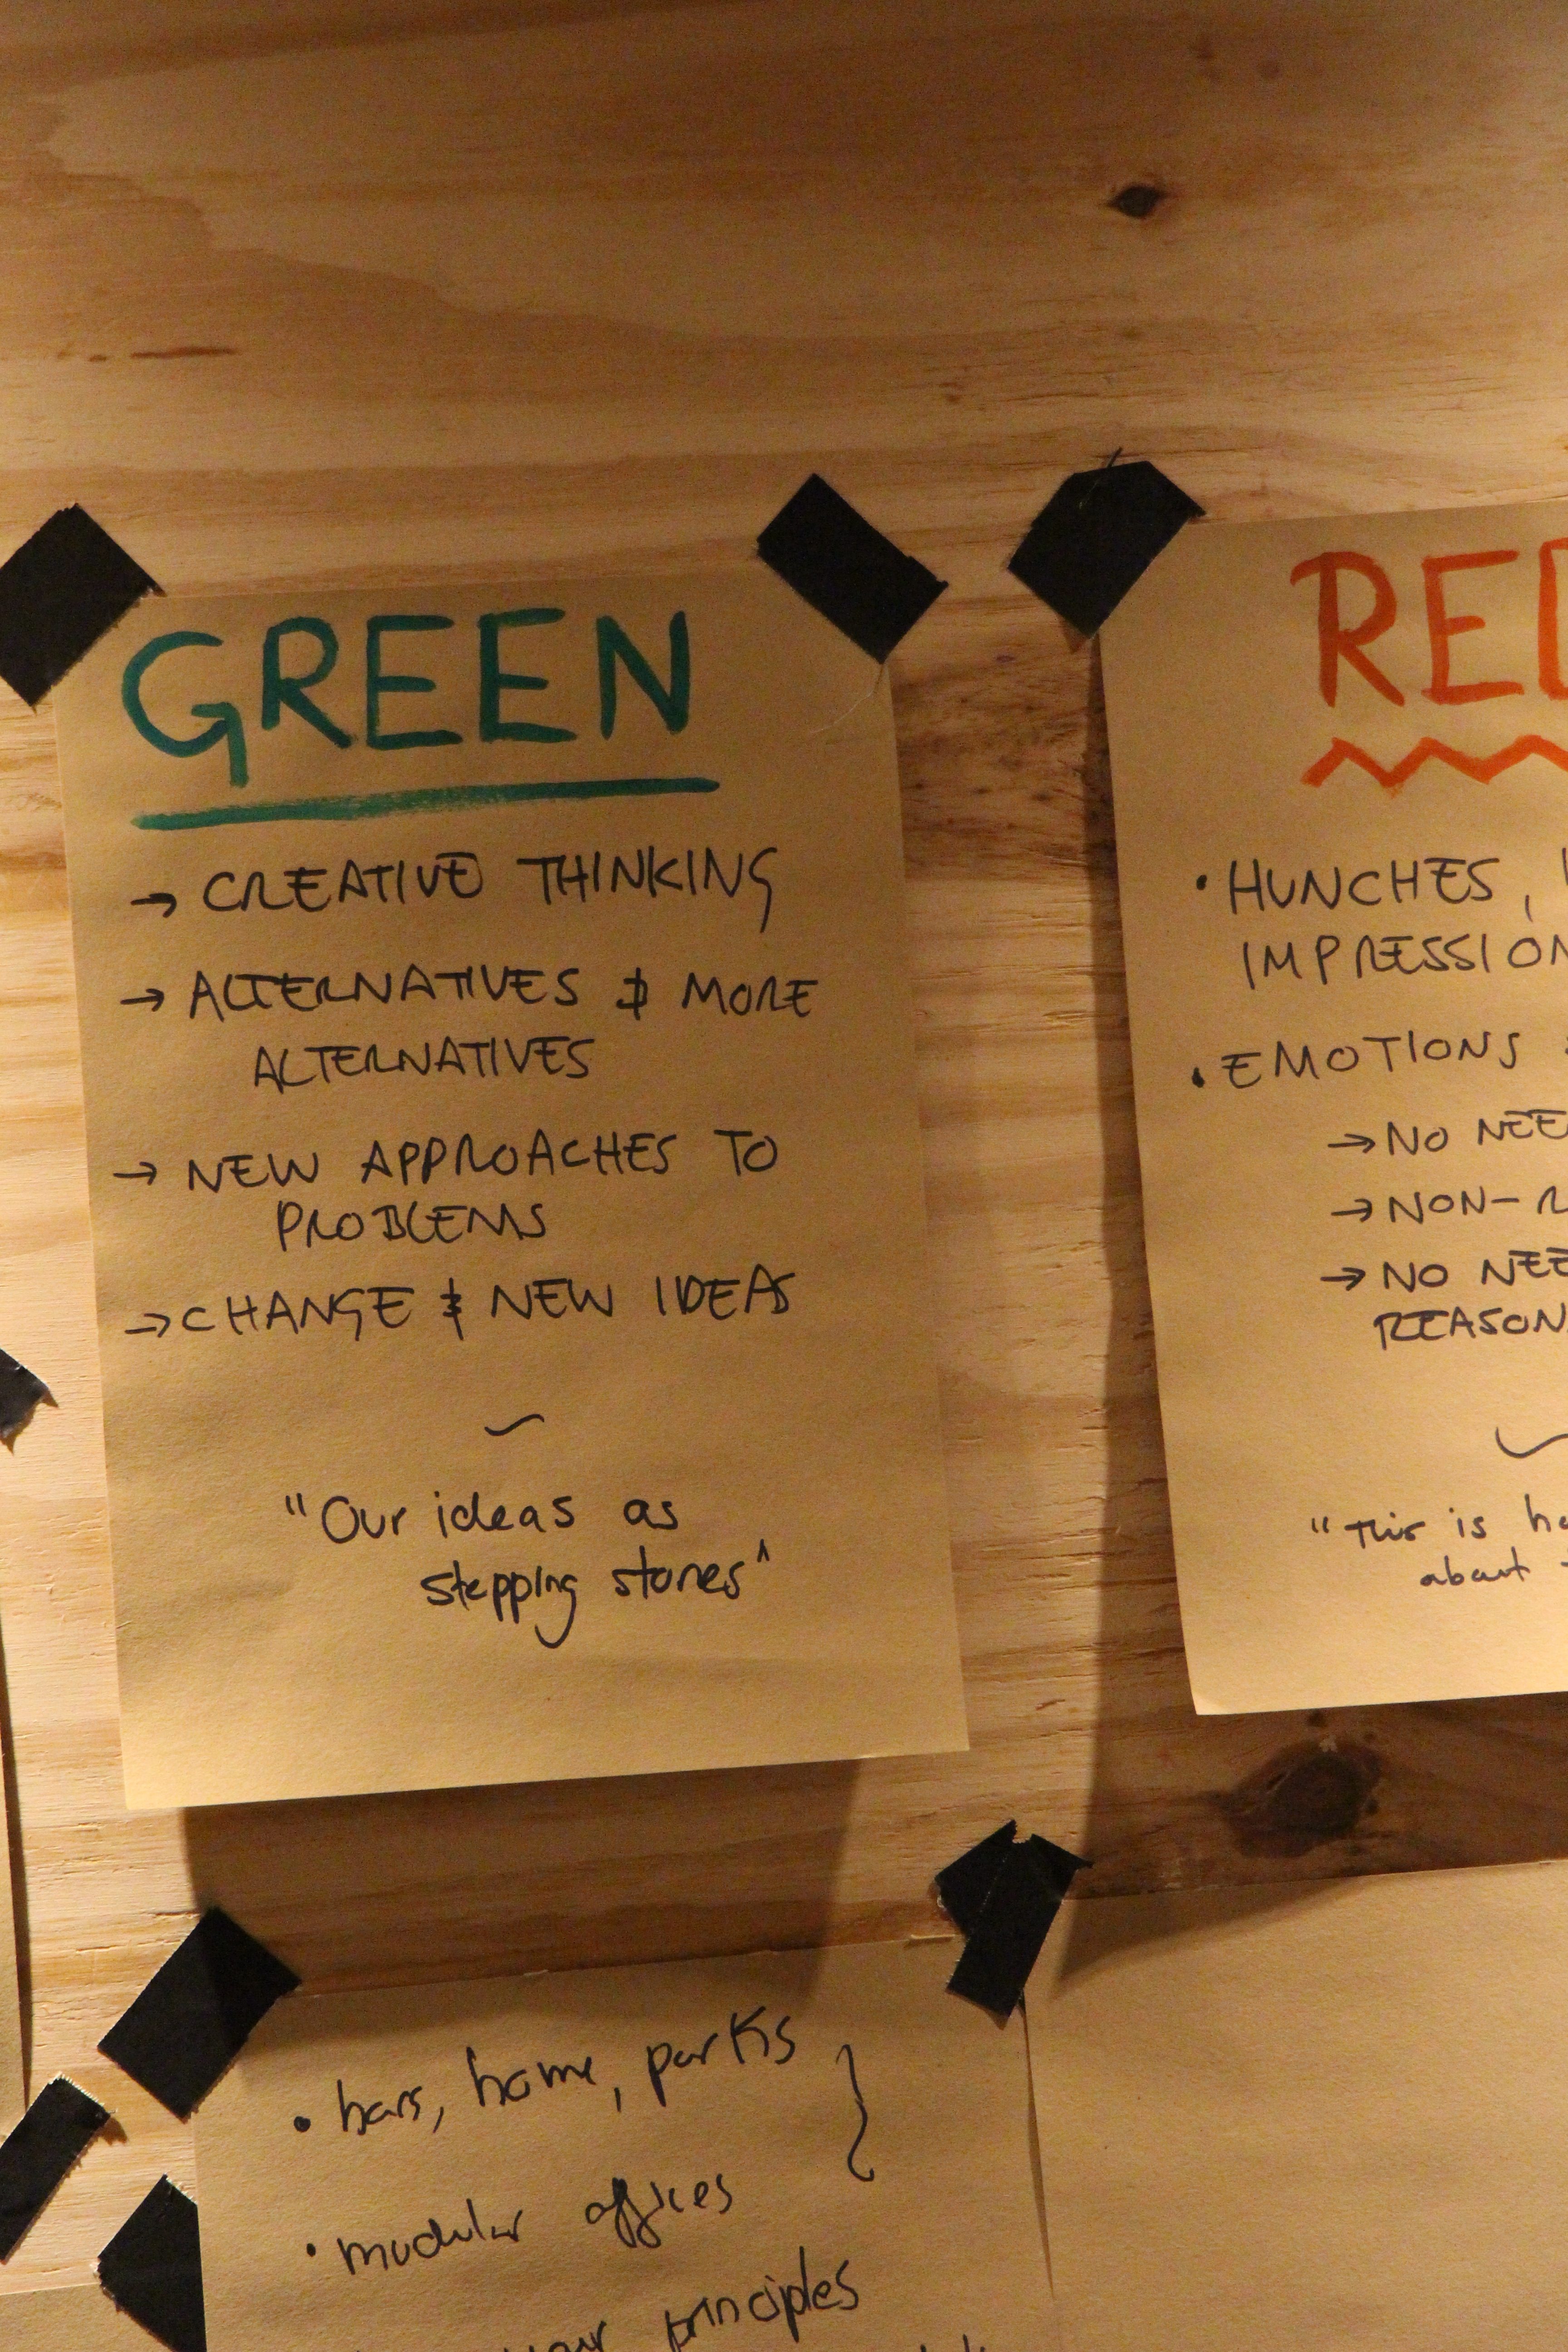 GREEN
→ CREATIVE THINKING
→ ALTERNATIVES & MORE
ALTERNATIVES
→ NEW APPROACHES TO
PROBLEMS
→ CHANGE & NEW IDEAS
~
"Our ideas as
stepping stones"
RED
• HUNCHES,
IMPRESSION
• EMOTIONS
→ NO NEE
→ NON-R
→ NO NEE
REASON
"This is ho
about
• bars, home, parks
• modular offices
principles